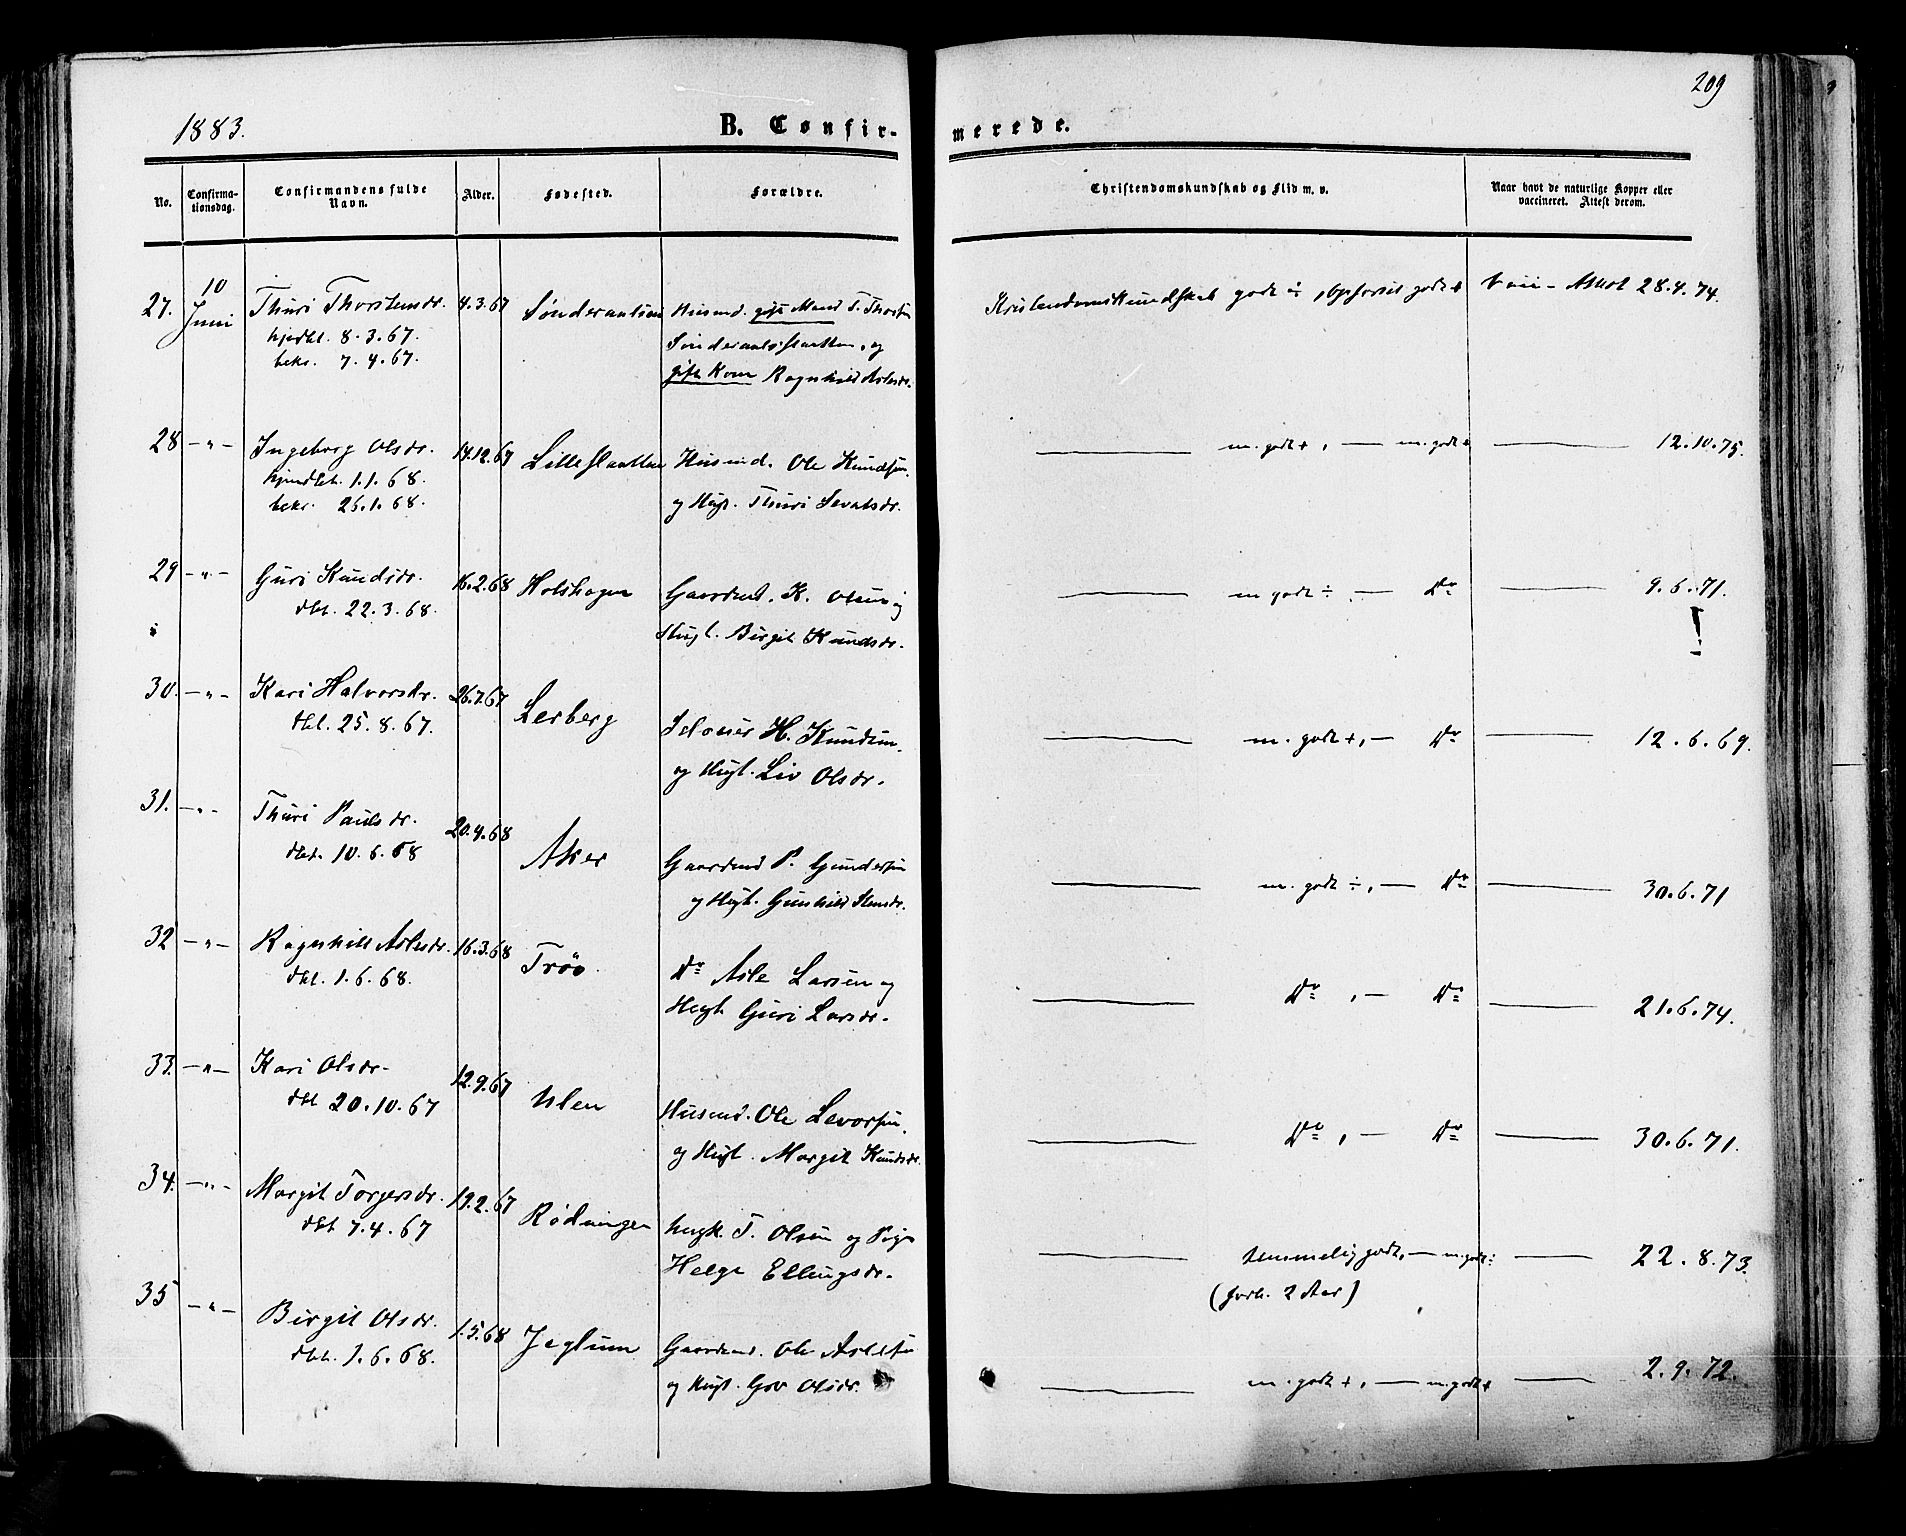 209
1883.
B. Confir-
merede.
No.
Confirma-
tionsdag.
Confirmandens fulde
Navn.
Alder.
Fødested.
Forældre.
Christendomskundskab og Flid m. v.
Naar havt de naturlige Kopper eller
vaccineret. Attest derom.
27. 10 Juni Thuri Thorstensdr. 4.3.67 Husmd. gift Mand T.
hjedbt. 8.3.67.
bekr. 7.4.67. og
gift Kone Ragnhild Aslesdr.
Kristendomskundskab godt ÷, Opførsel godt + Attest 28.4.74.
28 -"- Ingeborg Olsdr. 14.12.67 Lilleslaatten Husmd. Ole Knudsen
hjemdbt. 1.1.68.
bekr. 25.1.68. og Hugt. Thuri Sevatsdr.
— m. godt +, — m. godt + — 12.10.75.
29 -"- Guri Knudsdr. 16.2.68 Gaardmd. K. Olsen og
dbt. 22.3.68.
Hugt. Birgit Knudsdr.
— m godt ÷, — Do — 9.6.71.
!
30. -"- Kari Halvorsdr. 26.7.67 Lerberg
dbt. 25.8.67.
H. Knudsen
og Hugt. Liv Olsdr.
— m. godt +, — Do — 12.6.69.
31. -"- Thuri Paulsdr. 20.4.68 Aker Gaardmd P. Gundersen
dbt. 10.6.68
og Hugt. Gunhild
— m. godt ÷, — Do — 30.6.71
32 -"- Ragnhild Aslesdr. 16.3.68 Trøo Do Asle Larsen og
dbt. 1.6.68.
Hugt Guri Larsdr.
— Do, — Do — 21.6.74.
33. -"- Kari Olsdr. 12.9.67 Ulen Husmd. Ole Levorsen
dbt 20.10.67
og Hugt. Margit Knudsdr.
— Do, — Do — 30.6.71.
34. -"- Margit Torgersdr. 19.2.67 Rødningen Ungk. T. Olsen og Pige
dbt 7.4.67
Helge Ellingsdr.
— temmelig godt, — m. godt ÷ — 22.8.73.
(forh. 2 Aar)
35 -"- Birgit Olsdr. 1.5.68 Jeglum Gaardmd. Ole Aslesen
dbt. 1.6.68.
og Hugt. Gro Olsdr.
— m. godt +, — m. godt + — 2.9.72.